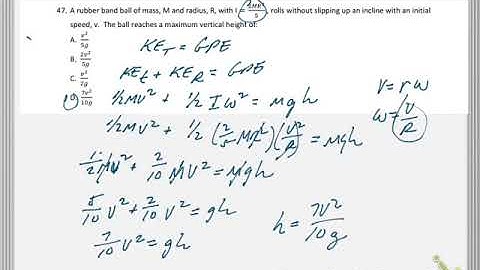 47. A rubber band ball of mass, M and radius, R, with I = 2MR²/5, rolls without slipping up an incline with an initial
speed, v. The ball reaches a maximum vertical height of:
A. v²/5g
B. 2v²/5g
C. v²/7g
D. 7v²/10g
KE_T = GPE
KE_t + KE_R = GPE
1/2 MV² + 1/2 I ω² = mgh
1/2 MV² + 1/2 (2/5 MR²)(V²/R²) = Mgh
1/2 MV² + 2/10 MV² = Mgh
5/10 V² + 2/10 V² = gh
7/10 V² = gh
h = 7V²/10g
V = r ω
ω = V/R